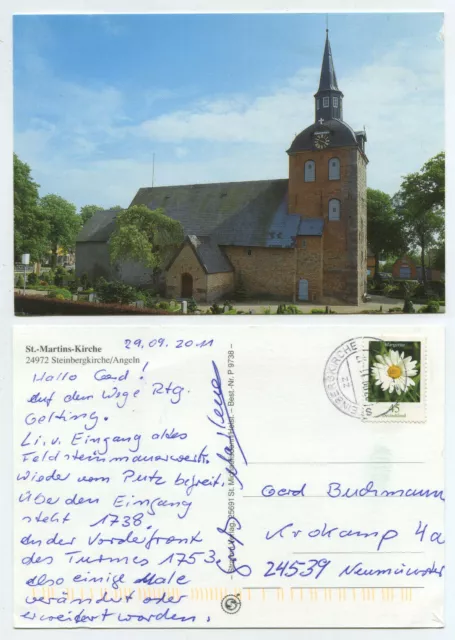 St.-Martins-Kirche
24972 Steinbergkirche/Angeln
29.09.2011
Hallo Gerd!
Auf dem Wege Rtg.
Gelting.
Li. v. Eingang altes
Feldsteinmauerwerk.
wieder vom Putz befreit.
Über den Eingang
steht 1738.
An der Vorderfront
des Turmes 1753.
also einige Male
verändert oder
erweitert worden.
25691 St. Mi
Best.-Nr. P 9738
STEINBERGKIRCHE
45
Gerd Buchmann
Krokamp 4a
24539 Neumünster